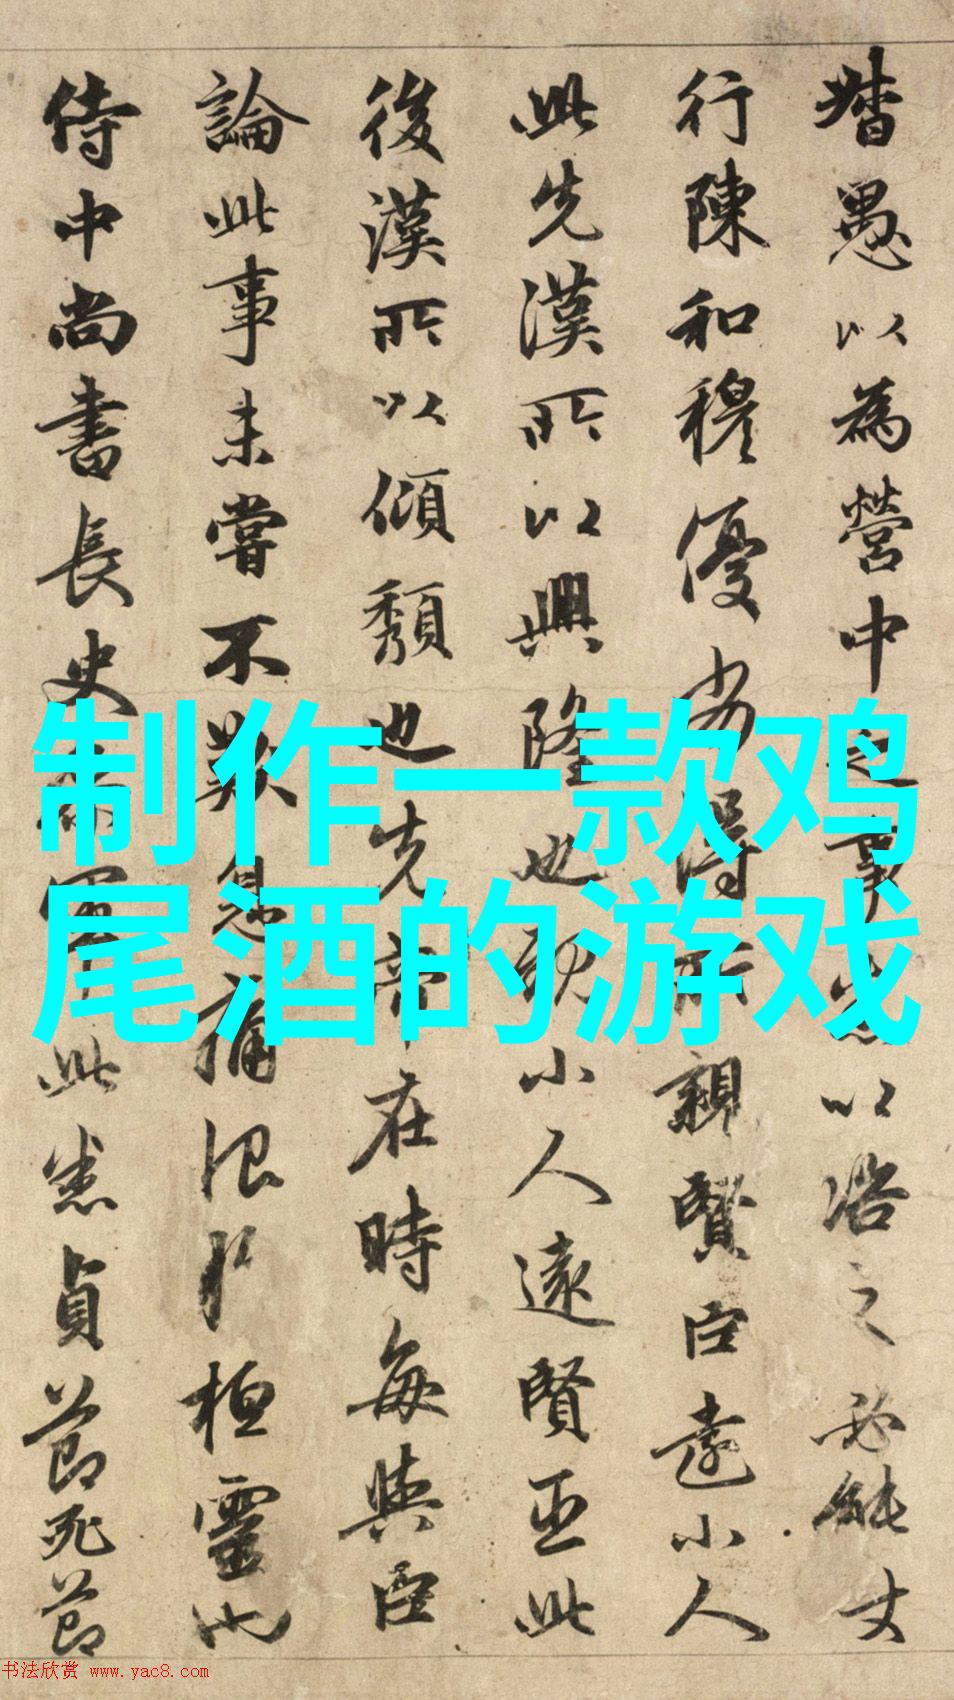 愚以為營中之事悉以之必能
行陳和穆優劣得所親賢臣遠小人
此先漢所以興隆也親小人遠賢臣此
後漢所以傾頹也先帝在時每與臣
論此事未嘗不歎息痛恨於桓靈也
侍中尚書長史參軍此悉貞節死節
制作一款鸡
尾酒的游戏
书法欣赏 www.yac8.com